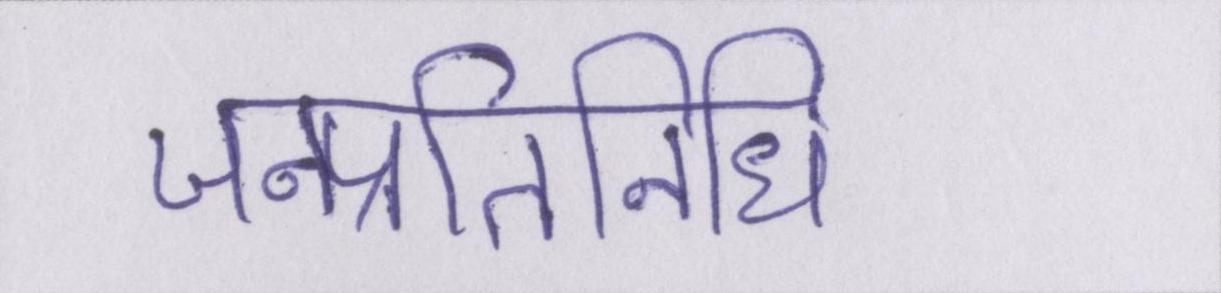 जनप्रतिनिधि